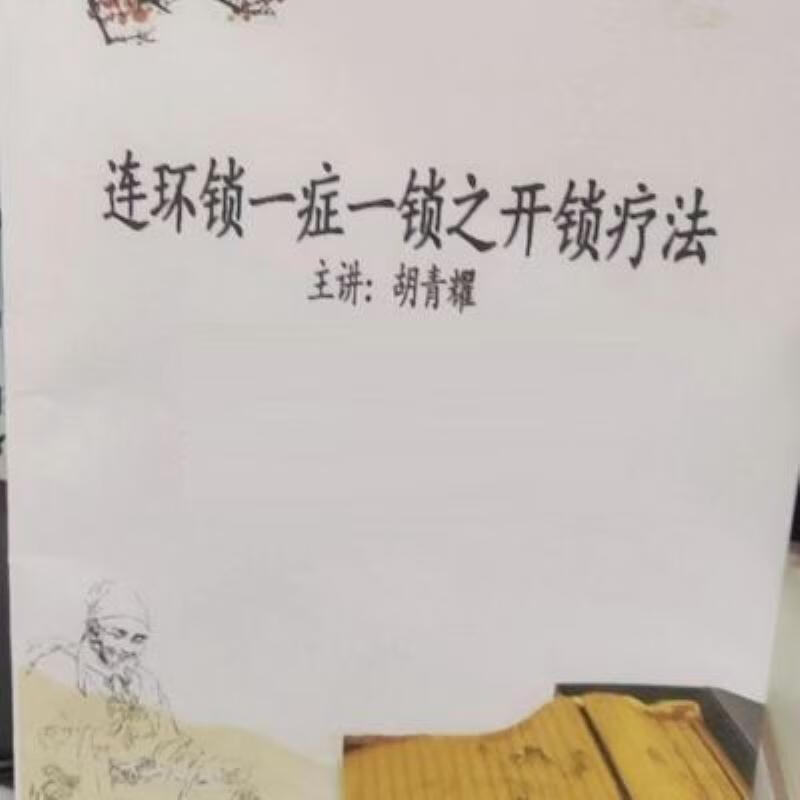 连环锁一症一锁之开锁疗法
主讲：胡青耀